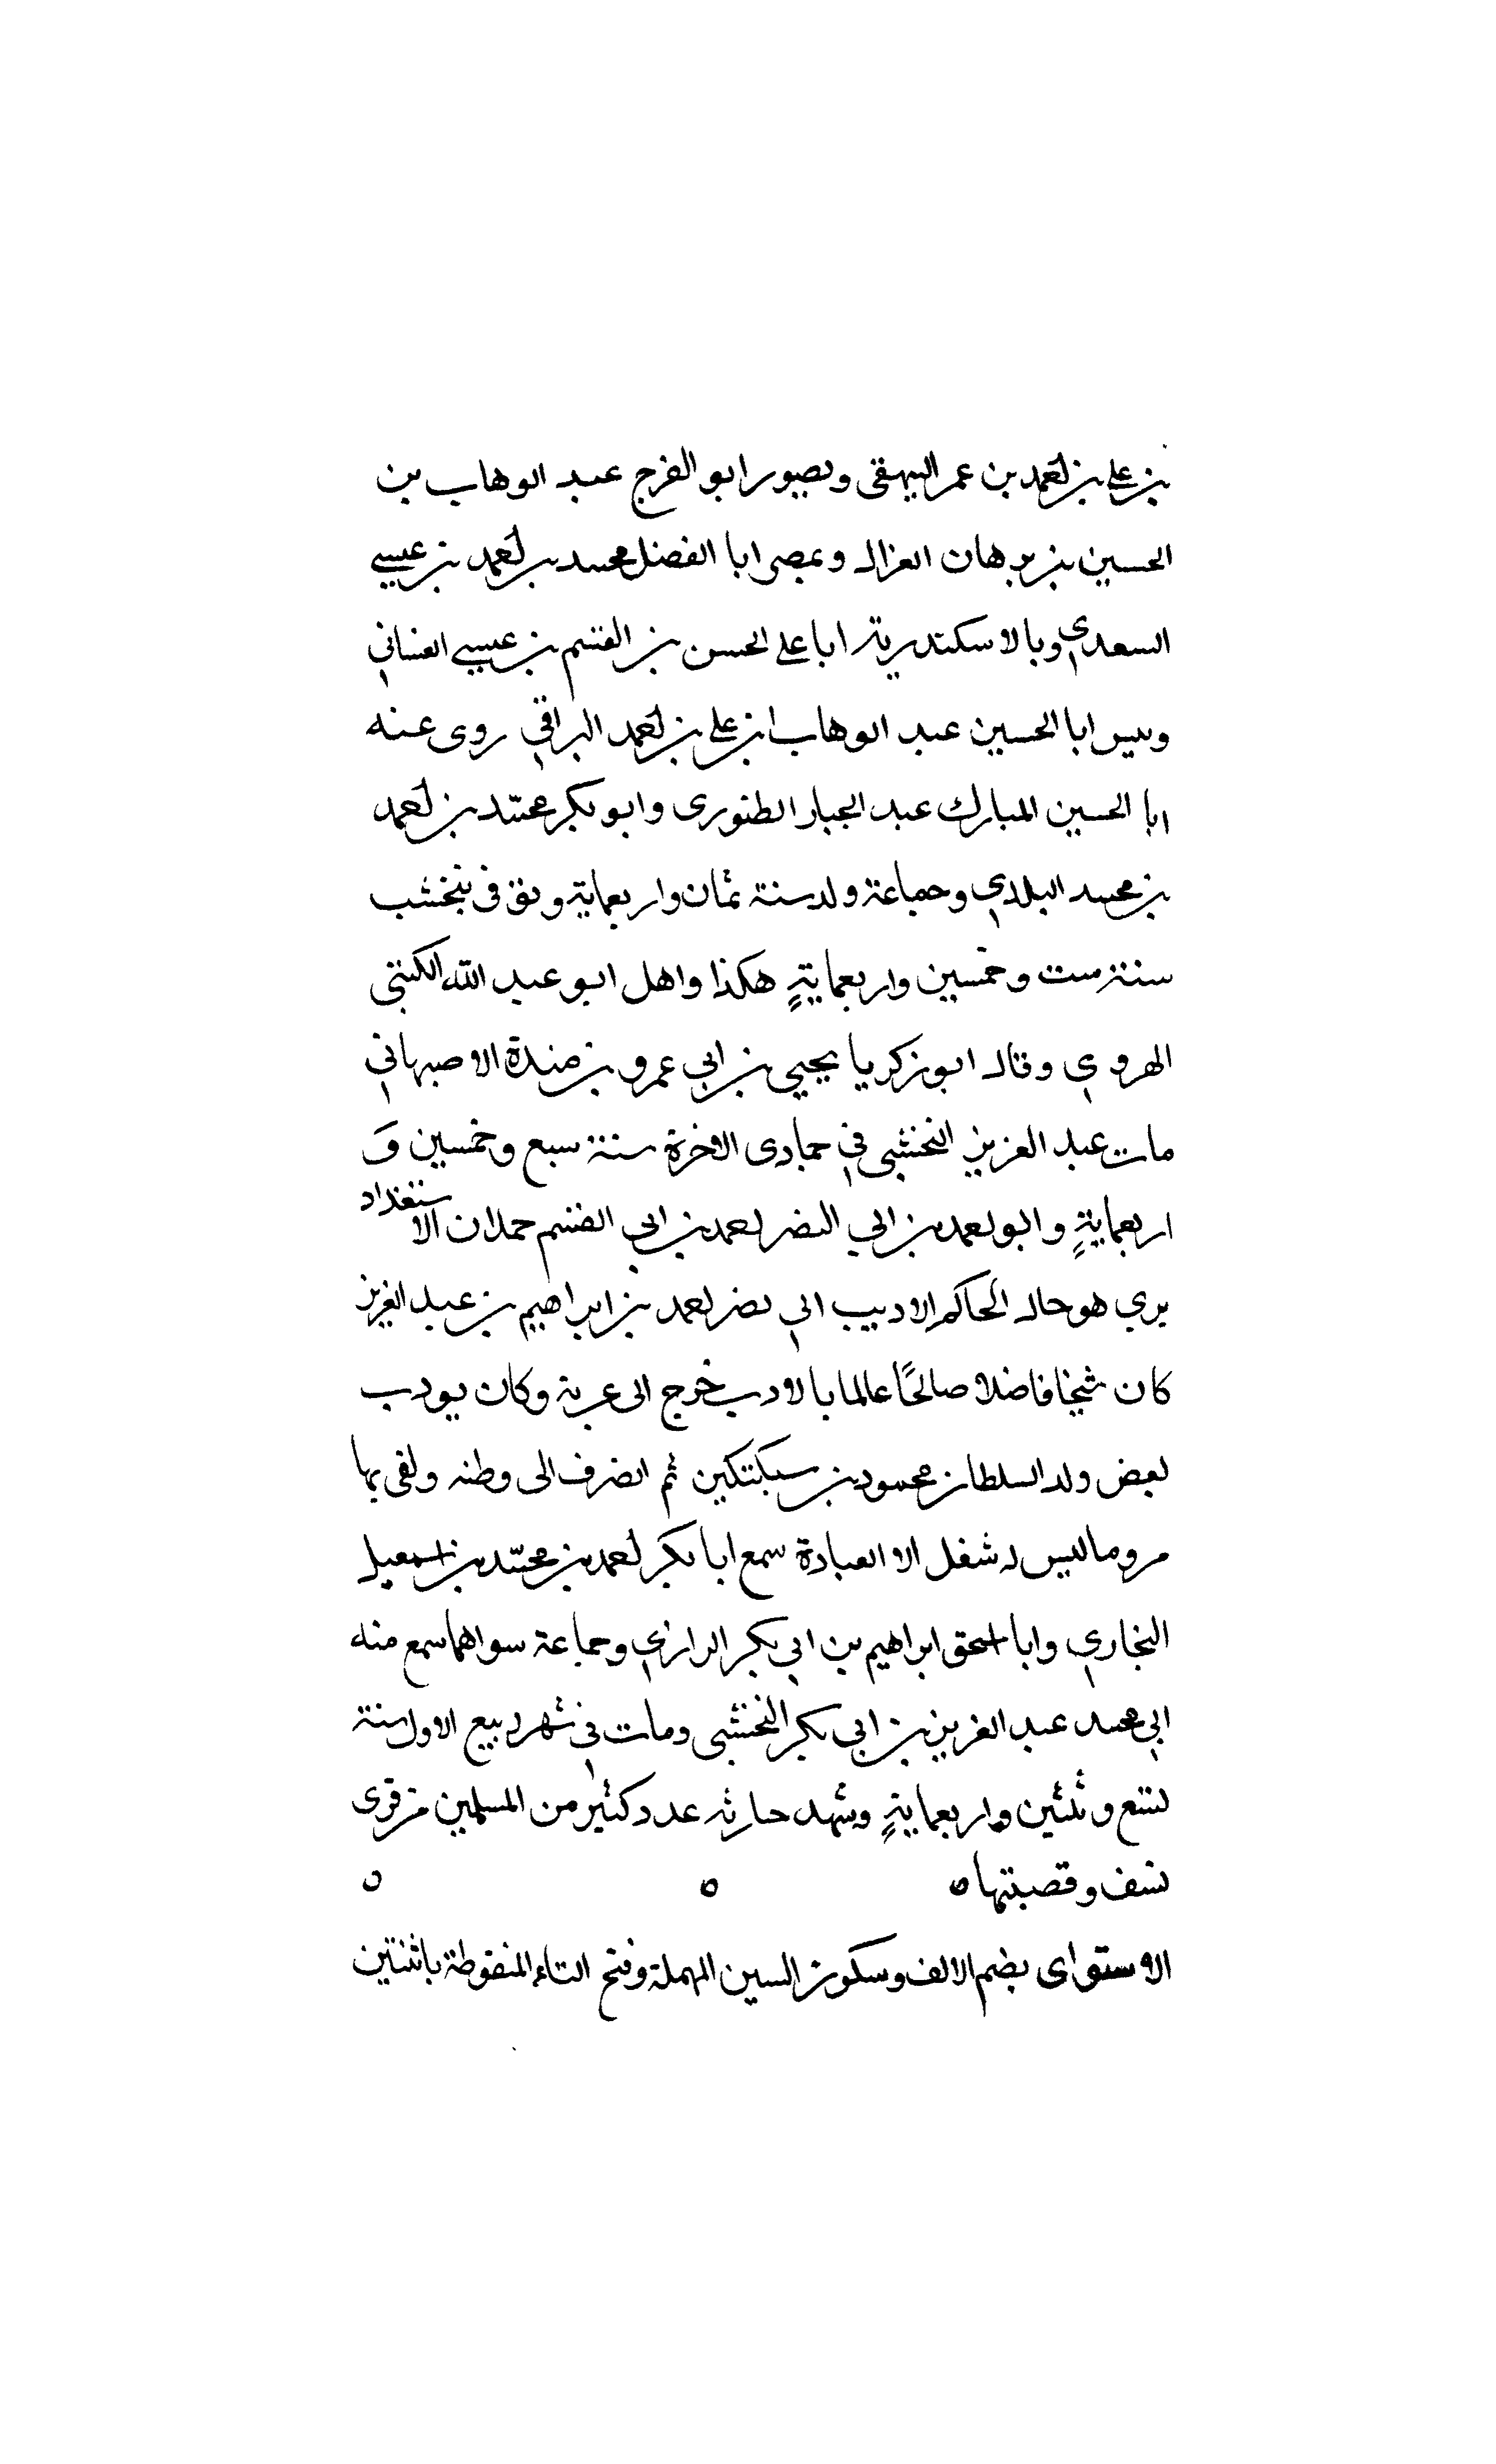 بن علي بن احمد بن عمر البيهقى وبصور ابو الفرج عبد الوهاب بن
الحسين بن برهان الغزال وبمصر ابا الفضل محمد بن احمد بن عيسى
السعدي وبالاسكندرية ابا علي الحسن بن القسم بن عيسى الغسانى
وببيس ابا الحسين عبد الوهاب ابن علي بن احمد البراقي روى عنه
ابا الحسين المبارك عبد الجبار الطنورى وابو بكر محمد بن احمد
بن محمد البلدي وجماعة ولد سنة ثمان واربعماية وتوفى بنخشب
سنة ست وخمسين واربعمايةٍ هكذا واهل ابو عبد الله الكتبى
الهروي وقال ابو زكريا يحيى بن ابي عمرو بن مندة الاصبهاني
مات عبد العزيز النخشبى في جمادى الاخرة سنة سبع وخمسين وَ
اربعمايةٍ وابو احمد بن ابي النضر احمد بن ابي القسم حمدان الاستغداد
يري هو خال الحاكم الاديب ابي نصر احمد بن ابراهيم بن عبد العزيز
كان شيخا فاضلا صالحًا عالما بالادب خرج الى غزنة وكان يودب
بعض ولد السلطان محمود بن سبكتكين ثم انصرف الى وطنه ولقى بها
مروما ليس له شغل الا العبادة سمع ابا بكر احمد بن محمد بن اسمعيل
البخاري وابا اسحق ابراهيم بن ابي بكر الرازي وجماعة سواهما سمع منه
ابي محمد عبد العزيز بن ابي بكر النخشبى ومات في شهر ربيع الاول سنة
تسع وثلثين واربعمايةٍ وشهد جنازته عدد كثير من المسلمين من قرى
نسف وقصبتها ٥ ٥ ٥
الاستواى بضم الالف وسكون السين المهملة وفتح التاء المنقوطة باثنتين